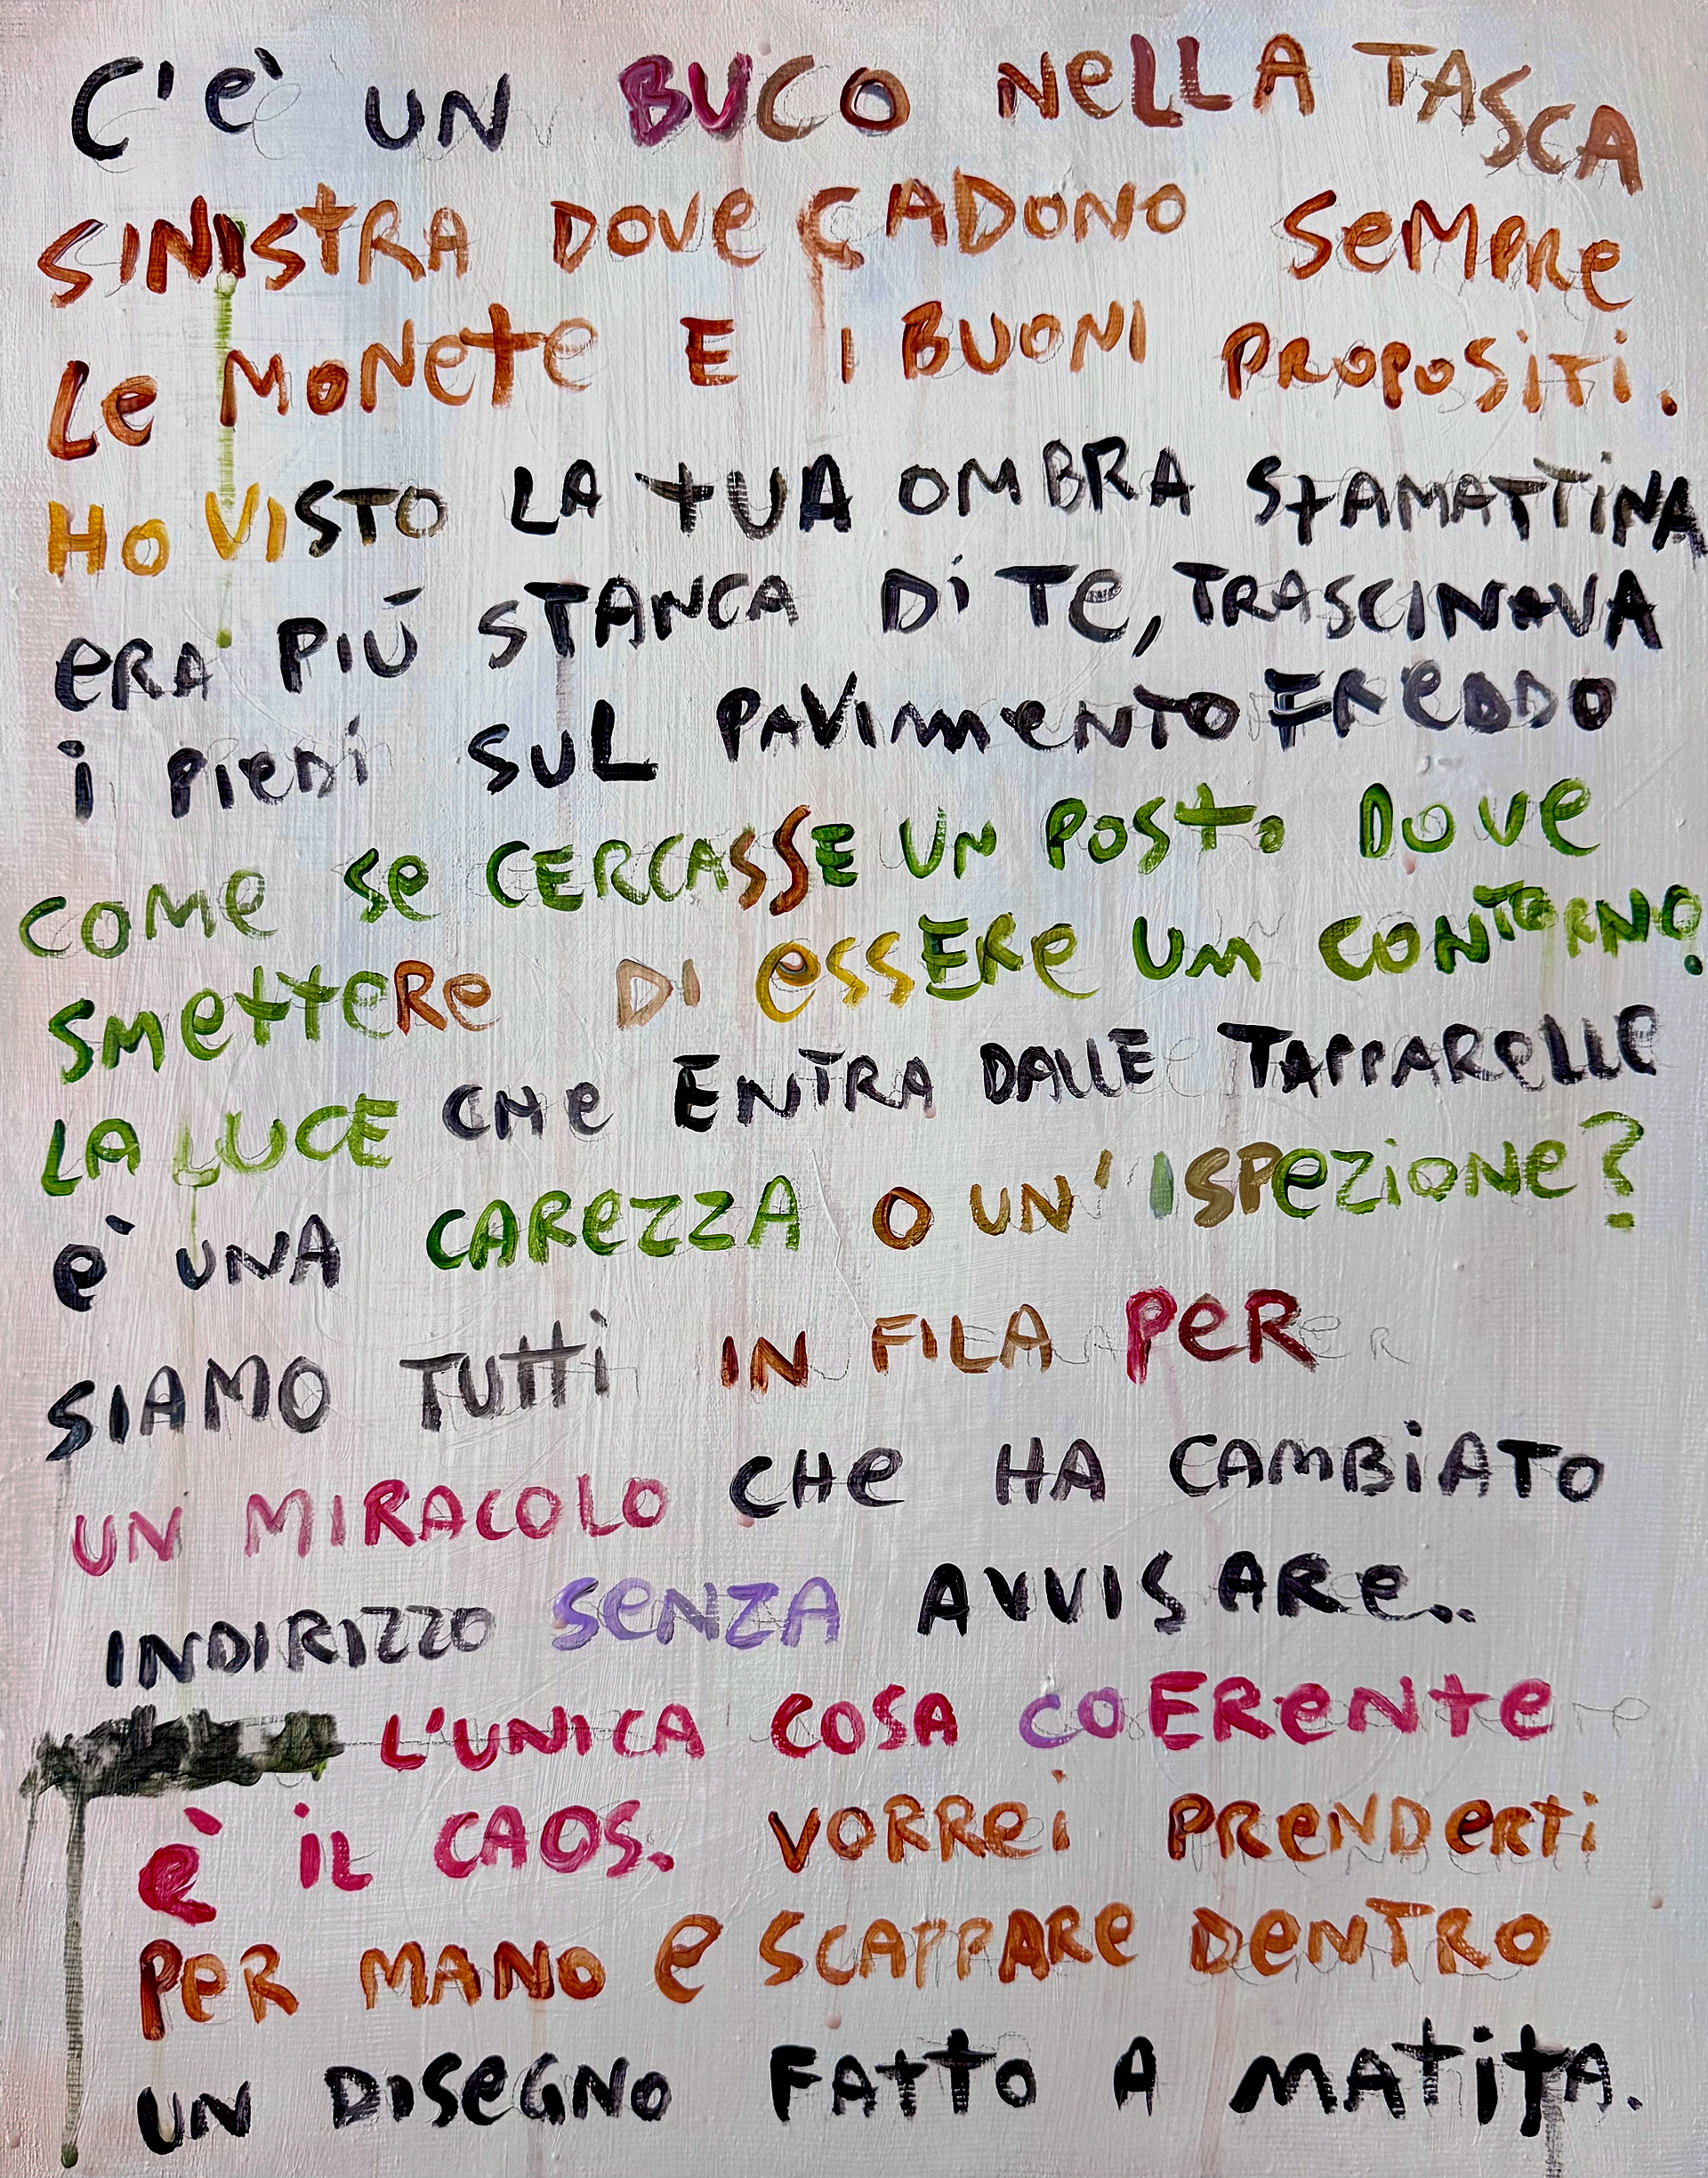 C'è UN BUCO NeLLA TASCA
SINISTRA DOVe CADONO SeMPRe
Le MONete E I BUONI PROPOSiTi.
HO VISTO LA tUA OMBRA StAMATTiNA
eRA PIÚ STANCA Di Te, TRASCINAVA
i PieDi SUL PAVIMeNTO FReDDO
COMe Se CERCASSE UN POSto DOVe
SMetteRe DI eSSERe UN CONTORNO.
LA LUCE CHe ENTRA DALLE TAPPAReLLe
è UNA CAReZZA O UN' ISPeZiONe?
SIAMO TUtti IN FILA PeR
UN MIRACOLO CHe HA CAMBiATO
INDIRIZZO SeNZA AVVISARe..
L'UNICA COSA COEReNte
è iL CAOS. VORRei PReNDeRti
PeR MANO e SCAPPARe DeNTRO
UN DISeGNO FAttO A MAtitA.